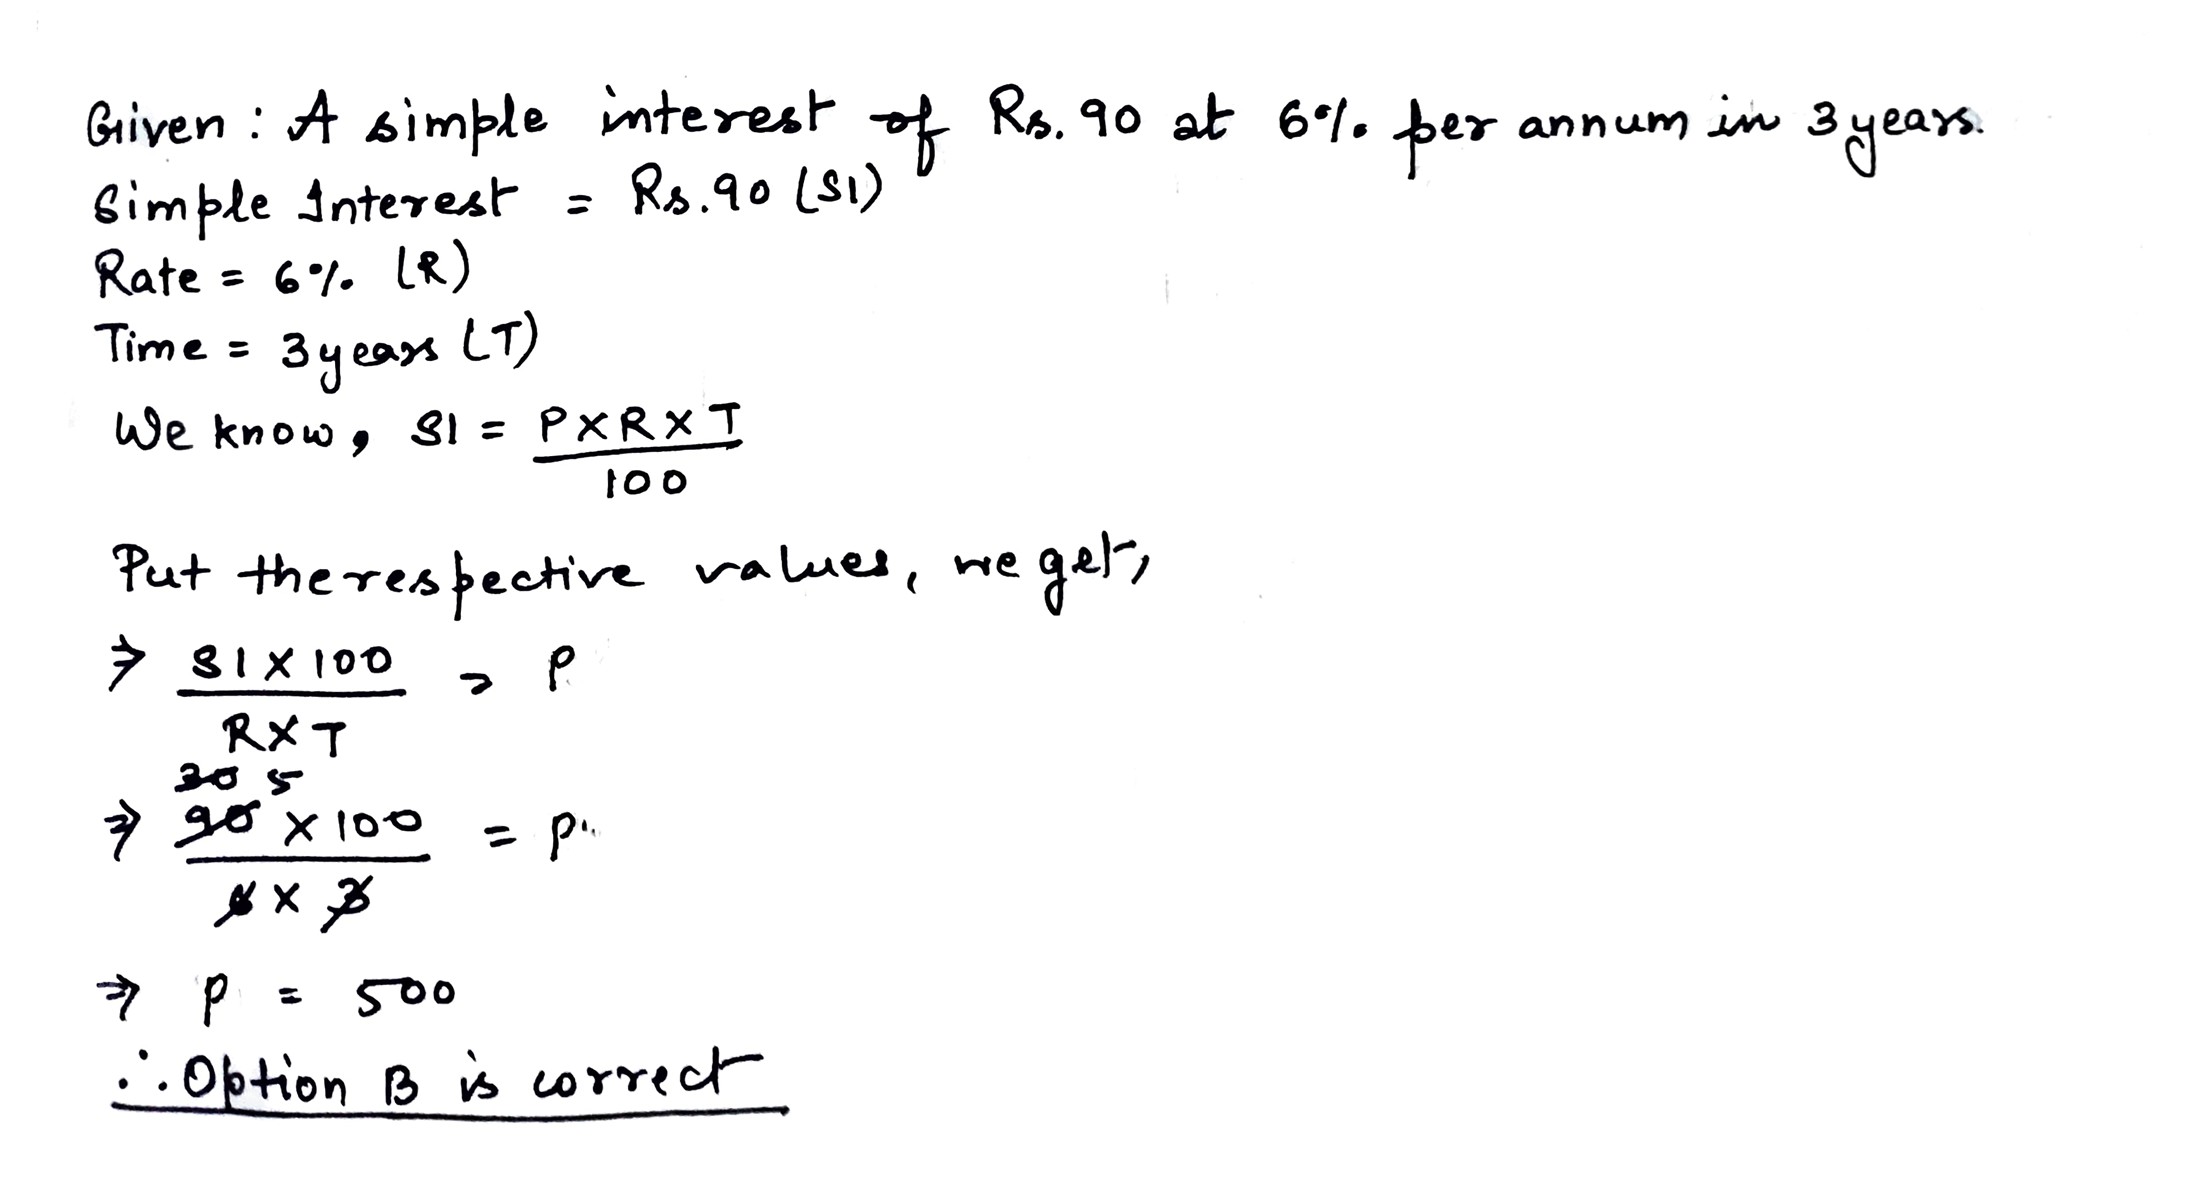 Given : A simple interest of Rs. 90 at 6% per annum in 3 years.
Simple Interest = Rs.90 (SI)
Rate = 6% (R)
Time = 3 years (T)
We know, SI = P X R X T
100
Put the respective values, we get,
⇒ SI X 100 = P
R X T
30 5
⇒ 90 X 100 = P
6 X 3
⇒ P = 500
∴ Option B is correct